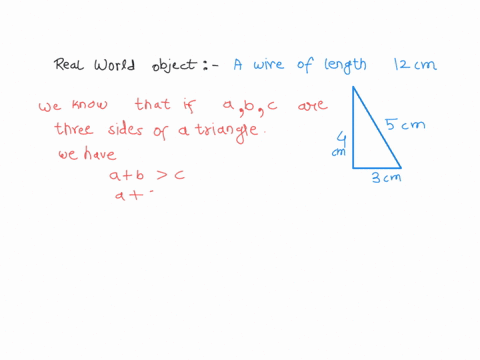 Real World object:- A wire of length 12 cm
We know that if a,b,c are
three sides of a triangle.
we have
a+b > c
a+
4
cm
5 cm
3 cm